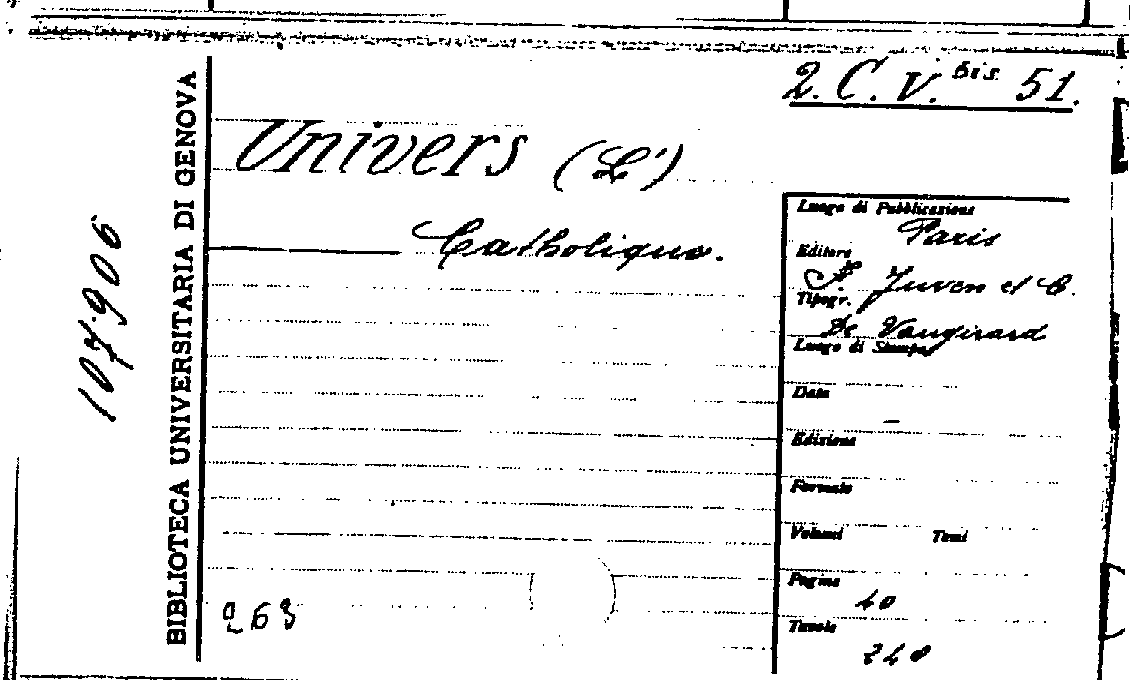 2. C. V. bis 51.
BIBLIOTECA UNIVERSITARIA DI GENOVA
107906
Univers (L')
Catholique.
Luogo di Pubblicazione
Paris
Editore
F. Juven et C.
Tipogr.
De Vaugirard
Luogo di Stampa
Data
–
Edizione
Formato
Volumi Tomi
Pagine
40
Tavole
240
263